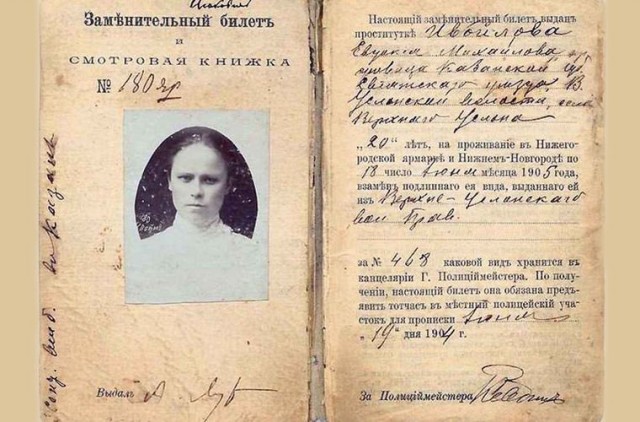 Замѣнительный билетъ
и
СМОТРОВАЯ КНИЖКА
№ 180 яр
Выдалъ
Настоящій замѣнительный билетъ выданъ
проституткѣ Ивойлова
Евдокія Михайлова кр
Казанской губ
Свіяжскаго уѣзда, В.
Услонской волости, села
Верхняго Услона
„20“ лѣтъ, на проживаніе въ Нижего-
родской ярмаркѣ и Нижнемъ-Новгородѣ по
18 число іюня мѣсяца 1905 года,
взамѣнъ подлиннаго ея вида, выданнаго ей
изъ Верхне-Услонскаго
вол Прав.
за № 468 каковой видъ хранится въ
канцеляріи Г. Полиціймейстера. По полу-
ченіи, настоящій билетъ она обязана предъ-
явить тотчасъ въ мѣстный полицейскій уча-
стокъ для прописки іюня
„19“ дня 1904 г.
За Полиціймейстера